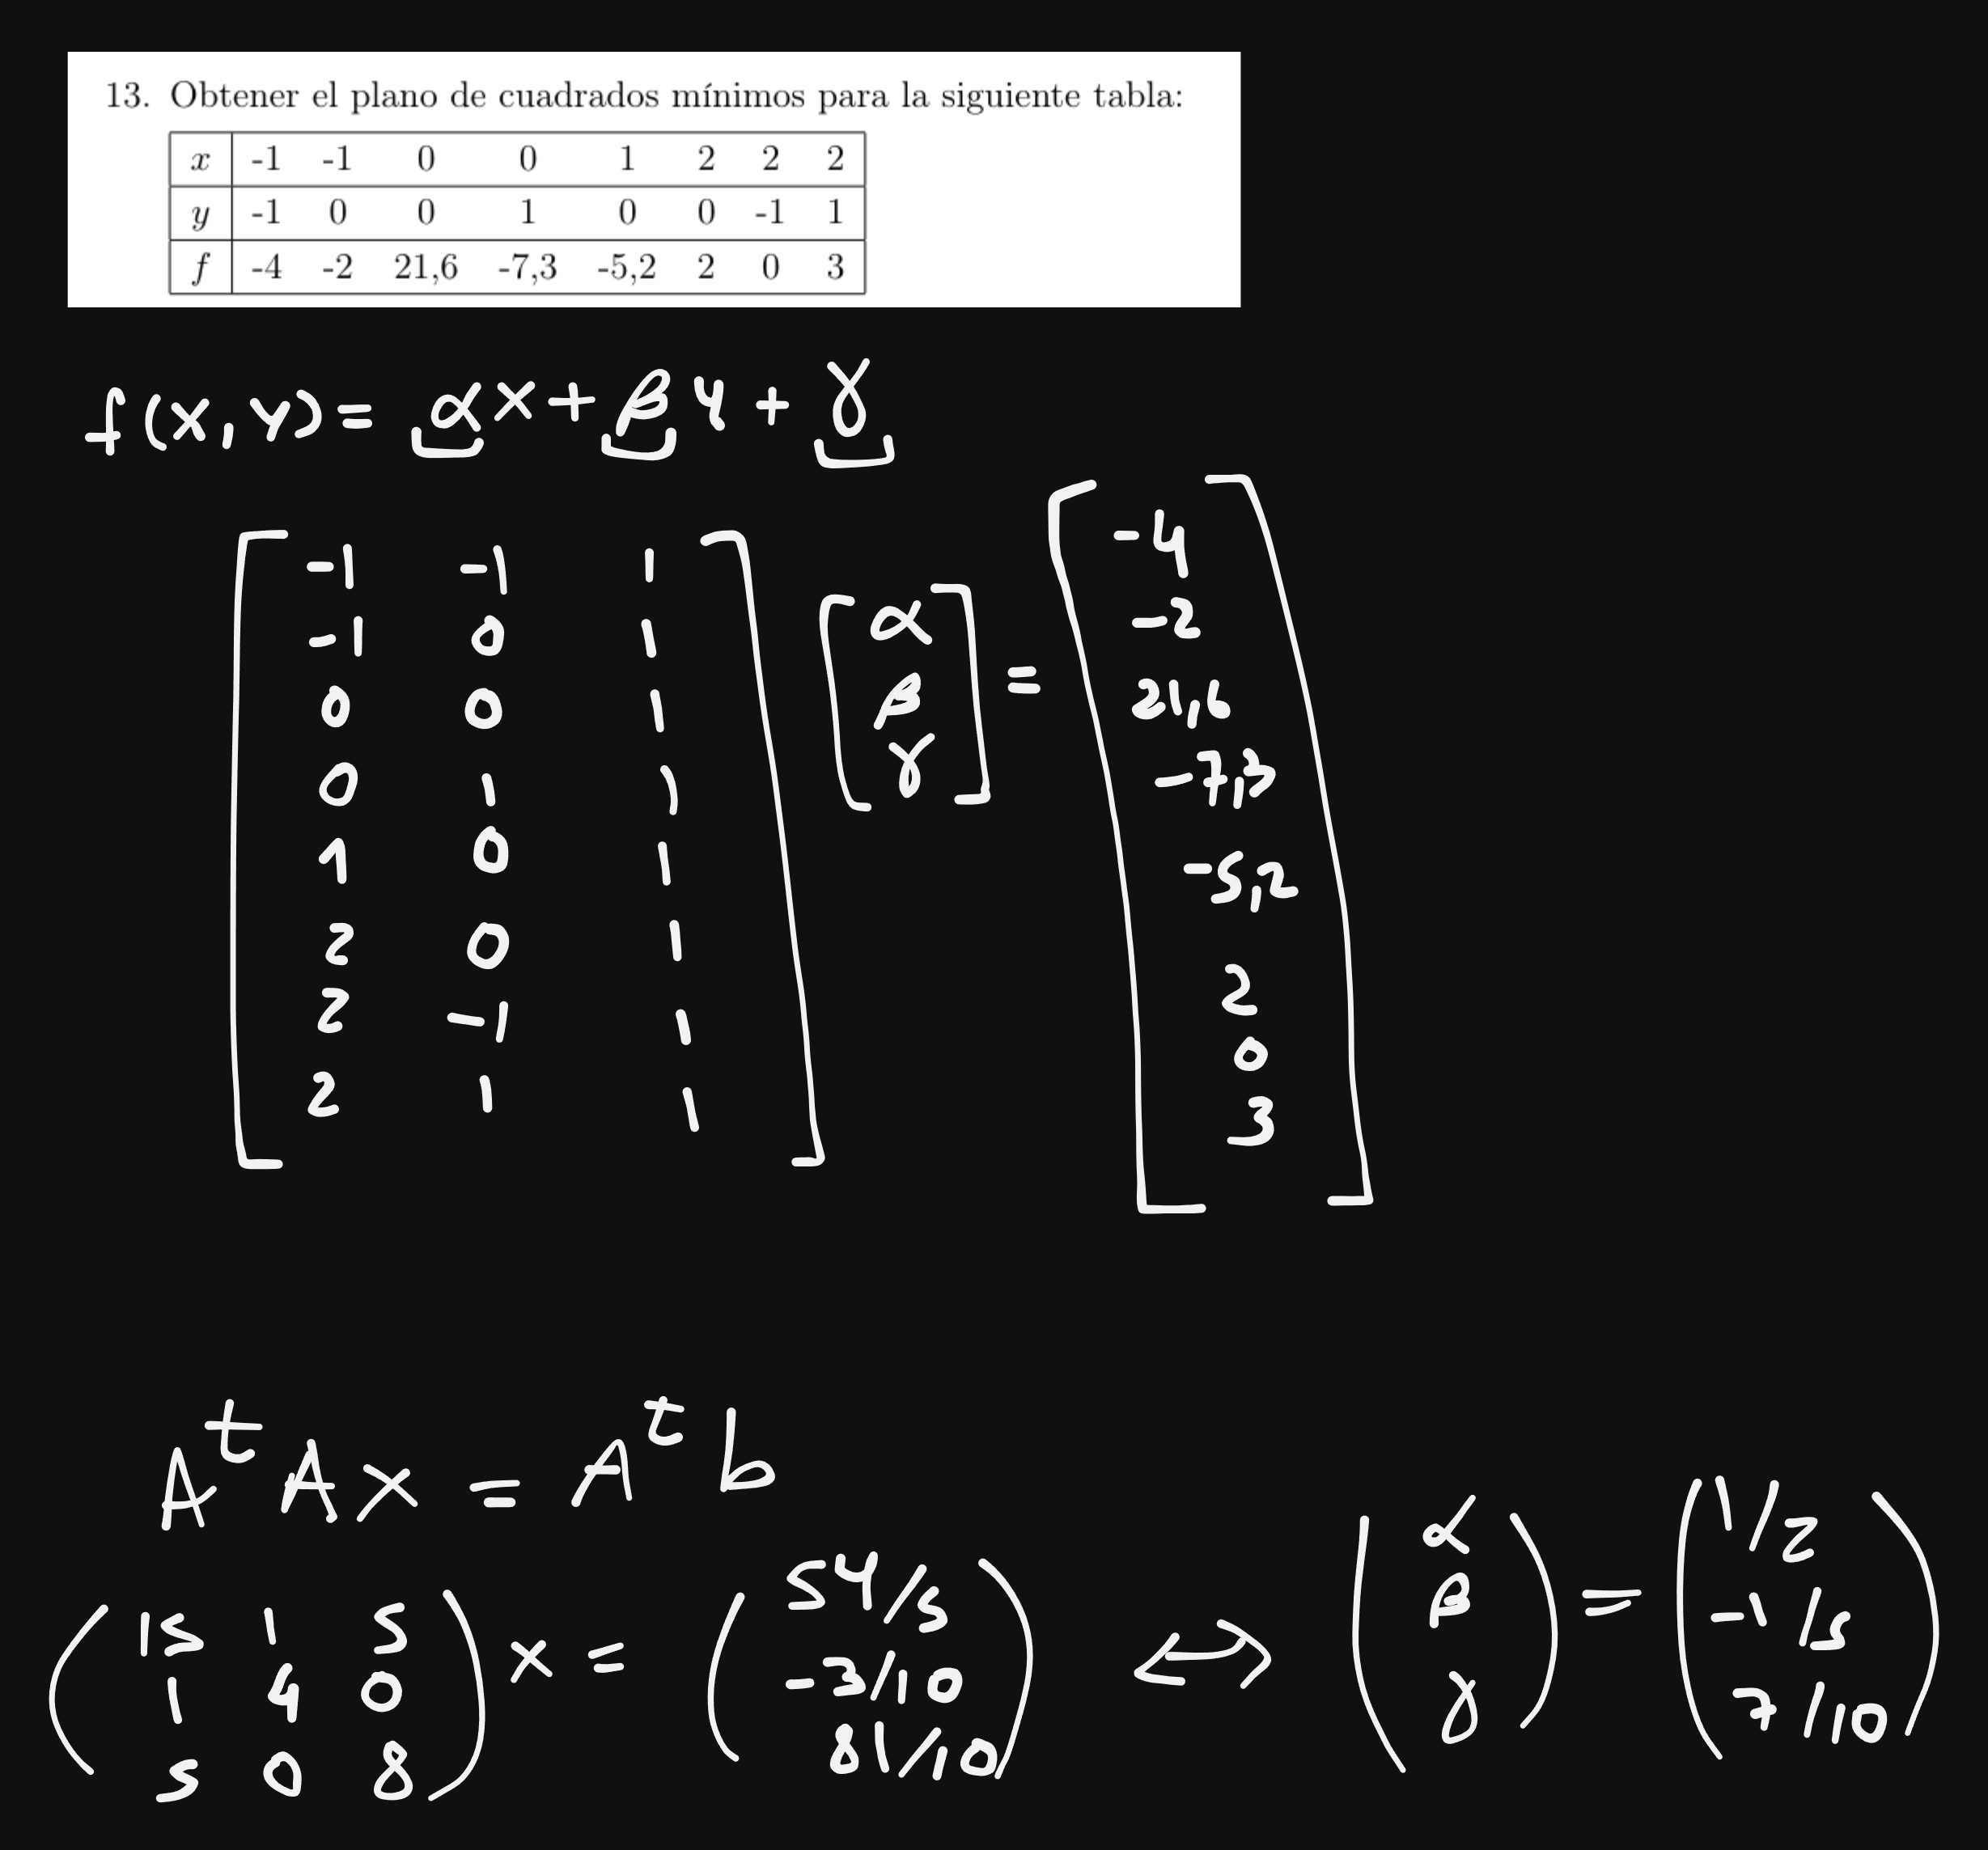 13. Obtener el plano de cuadrados mínimos para la siguiente tabla:
x -1 -1 0 0 1 2 2 2
y -1 0 0 1 0 0 -1 1
f -4 -2 21,6 -7,3 -5,2 2 0 3
f(x,y)= αx+βy+γ
-1 -1 1
-1 0 1
0 0 1
0 1 1
1 0 1
2 0 1
2 -1 1
2 1 1
α
β
γ
=
-4
-2
21,6
-7,3
-5,2
2
0
3
AᵗAx = Aᵗb
15 1 5
1 4 0
5 0 8
x =
54/5
-3/10
81/10
↔
α
β
γ
=
1/2
-1/5
7/10